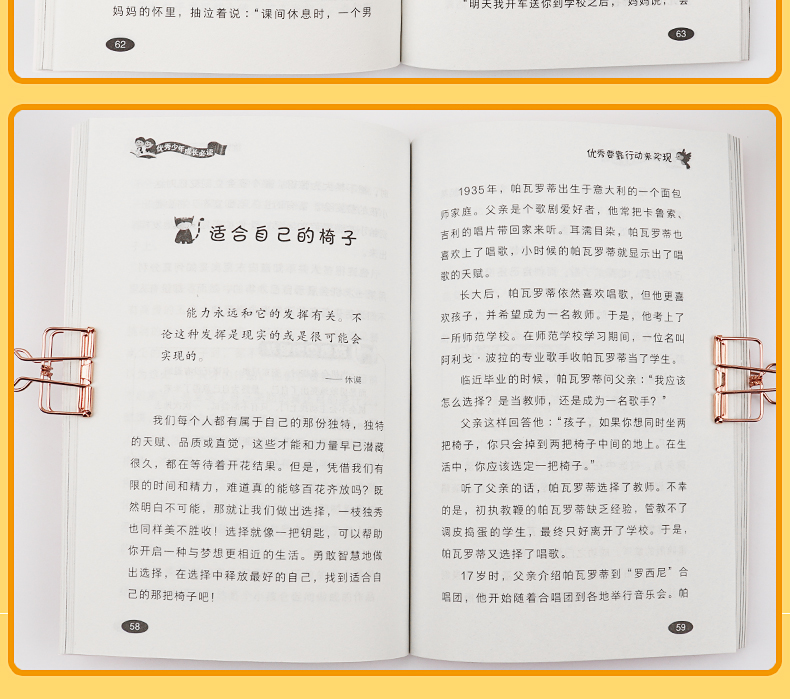 妈妈的怀里，抽泣着说：“课间休息时，一个男
62
“明天我开车送你到学校之后，”妈妈说，“会
63
优秀少年成长必读
适合自己的椅子
能力永远和它的发挥有关。不
论这种发挥是现实的或是很可能会
实现的。
——休谟
我们每个人都有属于自己的那份独特，独特
的天赋、品质或直觉，这些才能和力量早已潜藏
很久，都在等待着开花结果。但是，凭借我们有
限的时间和精力，难道真的能够百花齐放吗？既
然明白不可能，那就让我们做出选择，一枝独秀
也同样美不胜收！选择就像一把钥匙，可以帮助
你开启一种与梦想更相近的生活。勇敢智慧地做
出选择，在选择中释放最好的自己，找到适合自
己的那把椅子吧！
58
优秀要靠行动来实现
1935年，帕瓦罗蒂出生于意大利的一个面包
师家庭。父亲是个歌剧爱好者，他常把卡鲁索、
吉利的唱片带回家来听。耳濡目染，帕瓦罗蒂也
喜欢上了唱歌，小时候的帕瓦罗蒂就显示出了唱
歌的天赋。
长大后，帕瓦罗蒂依然喜欢唱歌，但他更喜
欢孩子，并希望成为一名教师。于是，他考上了
一所师范学校。在师范学校学习期间，一位名叫
阿利戈·波拉的专业歌手收帕瓦罗蒂当了学生。
临近毕业的时候，帕瓦罗蒂问父亲：“我应该
怎么选择？是当教师，还是成为一名歌手？”
父亲这样回答他：“孩子，如果你想同时坐两
把椅子，你只会掉到两把椅子中间的地上。在生
活中，你应该选定一把椅子。”
听了父亲的话，帕瓦罗蒂选择了教师。不幸
的是，初执教鞭的帕瓦罗蒂缺乏经验，管教不了
调皮捣蛋的学生，最终只好离开了学校。于是，
帕瓦罗蒂又选择了唱歌。
17岁时，父亲介绍帕瓦罗蒂到“罗西尼”合
唱团，他开始随着合唱团到各地举行音乐会。帕
59